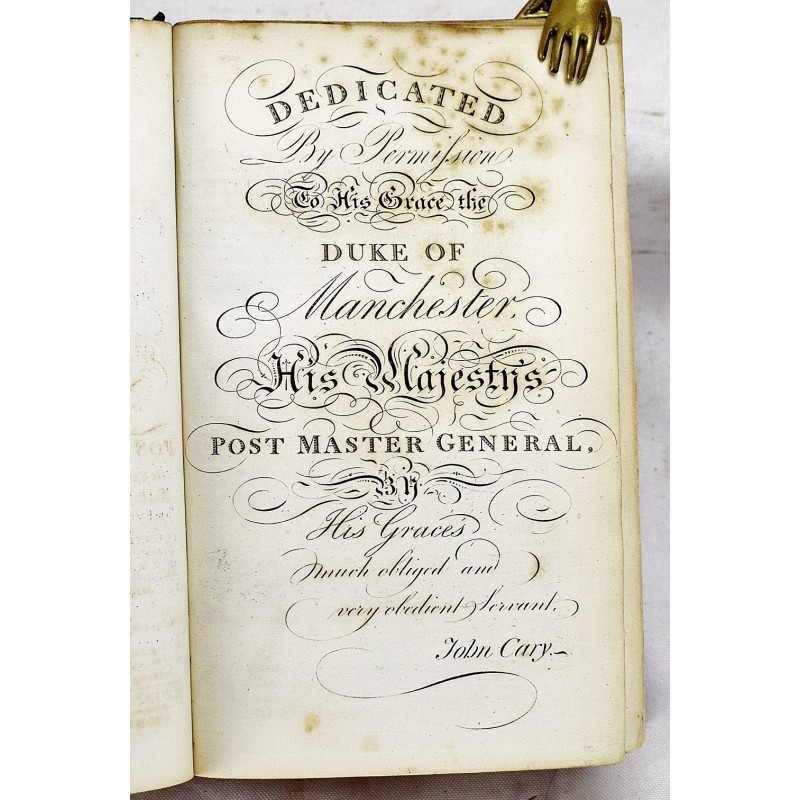 DEDICATED
By Permiſsion
To His Grace the
DUKE OF
Manchester,
His Majesty's
POST MASTER GENERAL,
BY
His Grace's
much obliged and
very obedient Servant,
John Cary.